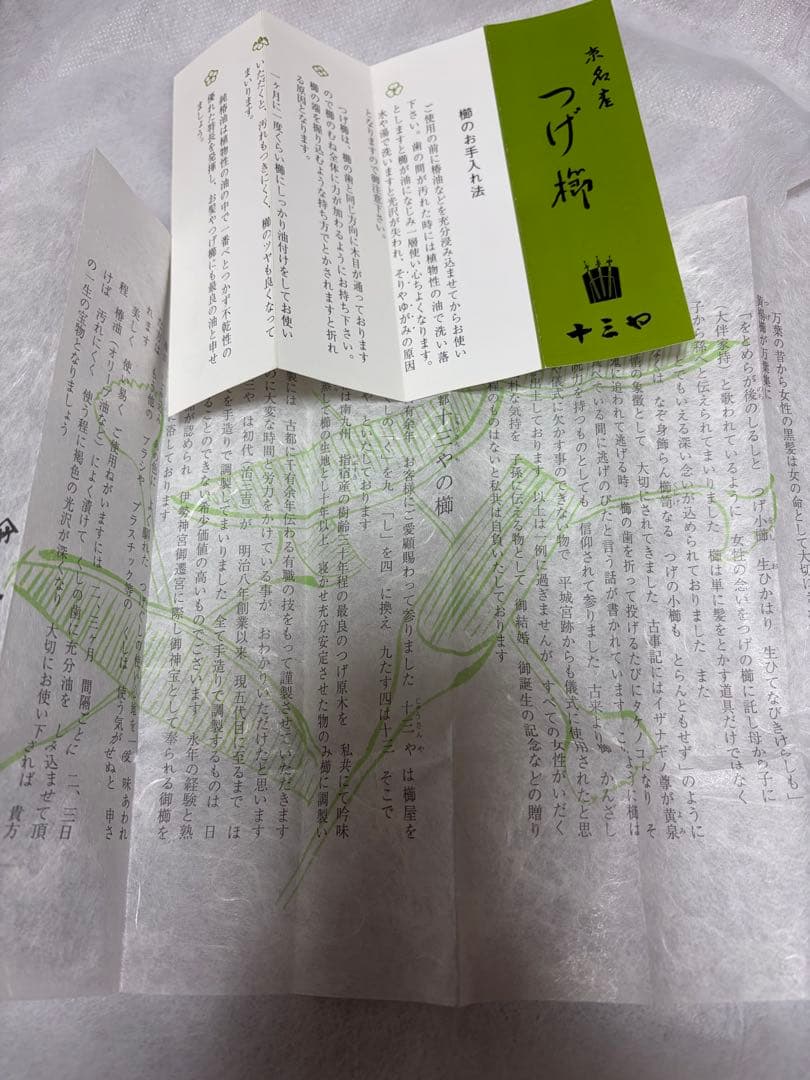 京名産
つげ櫛
十三や
櫛のお手入れ法
ご使用の前に椿油などを充分浸み込ませてからお使い
下さい。歯の間が汚れた時には植物性の油で洗い落
としますと櫛が油になじみ一層使い心ちよくなります。
水や湯で洗いますと光沢が失われ、そりやゆがみの原因
となりますので御注意下さい。
つげ櫛は、櫛の歯と同じ方向に木目が通っております
ので櫛のむね全体に力が加わるようにお持ち下さい。
櫛の端を握り込むような持ち方でとかされますと折れ
る原因となります。
一ヶ月に一度ぐらい櫛にしっかり油付けをしてお使い
いただくと、汚れもつきにくく、櫛のツヤも良くなって
まいります。
純椿油は植物性の油の中で一番べとつかず不乾性の
優れた特長を発揮し、お髪やつげ櫛にも最良の油と申せ
ましょう。
万葉の昔から女性の黒髪は女の命として大切
黄楊櫛が万葉集に
「をとめらが後のしるしと つげ小櫛 生ひかはり 生ひてなびきけらしも」
(大伴家持)と歌われているように 女性の念いをつげの櫛に託し母から子に
子から孫へと伝えられてまいりました 櫛は単に髪をとかす道具だけではなく
してもいえる深い念いが込められておりました また
なぞ身飾らん櫛笥なる つげの小櫛も とらんともせず」のように
櫛の象徴として 大切にされてきました 古事記にはイザナギノ尊が黄泉
鬼に追われて逃げる時 櫛の歯を折って投げるたびにタケノコになり そ
べている間に逃げのびたと言う話が書かれています このように櫛は
呪力を持つものとしても 信仰されて参りました 古来より櫛 かんざし
や儀式に欠かす事のできない物で 平城宮跡からも儀式に使用されたと思
出土しております 以上は一例に過ぎませんが すべての女性がいだく
朴な気持を 子孫に伝える物として 御結婚 御誕生の記念などの贈り
程のものはないと私共は自負いたしております
都十三やの櫛
有余年 お客様にご愛顧賜わって参りました 十三や は櫛屋を
しの「く」を九 「し」を四 に換え 九たす四は十三 そこで
やといたしております
は南九州 指宿産の樹齢三十年程の最良のつげ原木を 私共にて吟味
蒸して櫛の生地として十年以上 寝かせ充分安定させた物のみ櫛に調製い
には 古都に千有余年伝わる有職の技をもって謹製させていただきます
のに大変な時間と労力をかけている事が おわかりいただけたと思います
三やは初代(治三吉)が 明治八年創業以来 現五代目に至るまで ほ
を手造りで調製してまいりました 全て手造りで調製するものは 日
ることのできない希少価値の高いものでございます 永年の経験と熟
が認められ 伊勢神宮御遷宮に際し御神宝として奉られる御櫛を
しております
れます
他の ブラシや プラスチック等の くしは 使う気がせぬと 申さ
美しく 使い易く ご使用ねがいますには 二、三ヶ月 間隔ごとに 二、三日
程 椿油(オリーブ油など)によく漬けて くしの歯に充分油を しみ込ませて頂
けば 汚れにくく 使う程に褐色の光沢が深くなり 大切にお使い下されば 貴方
の一生の宝物となりましょう